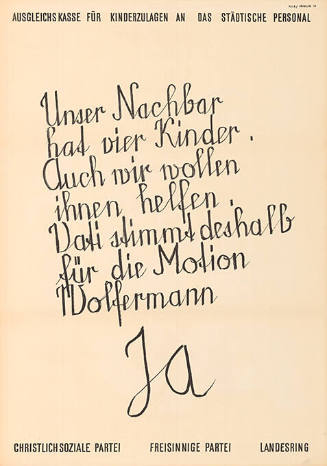 AUSGLEICHSKASSE FÜR KINDERZULAGEN AN DAS STÄDTISCHE PERSONAL
Unser Nachbar
hat vier Kinder.
Auch wir wollen
ihnen helfen.
Vati stimmt deshalb
für die Motion
Wolfermann
Ja
CHRISTLICHSOZIALE PARTEI FREISINNIGE PARTEI LANDESRING